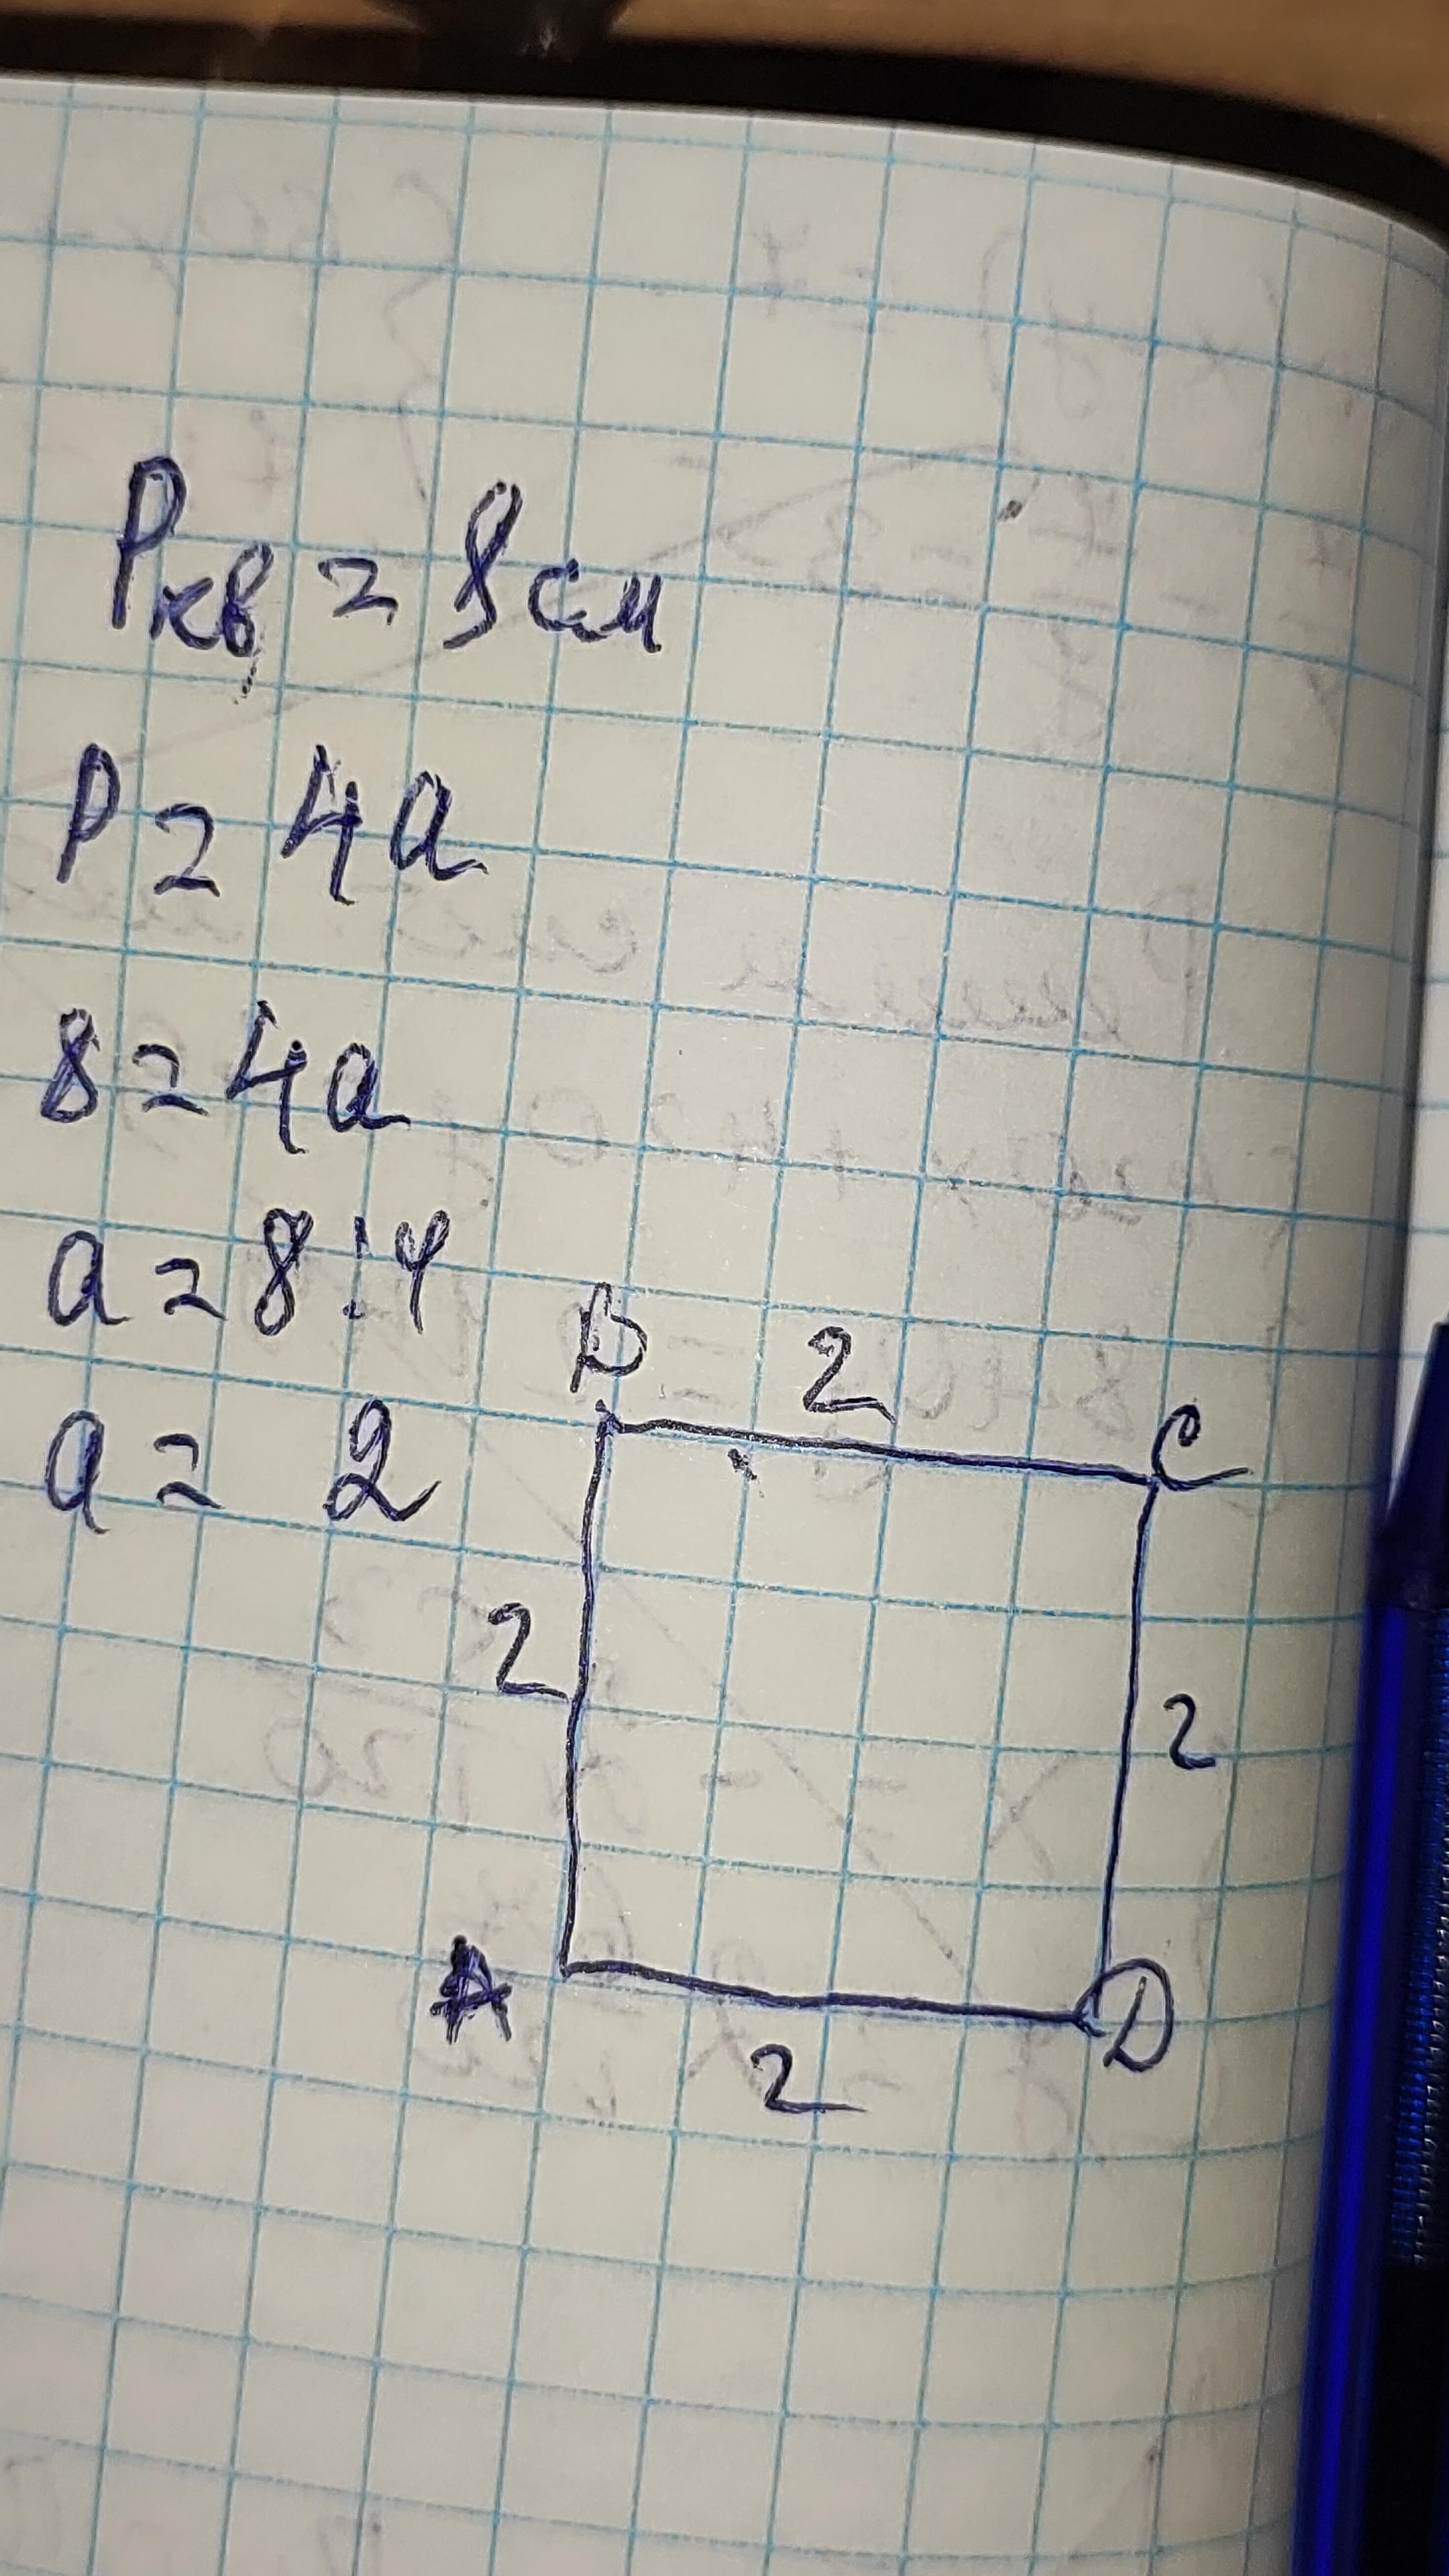 Pкв = 8 см
P = 4a
8 = 4a
a = 8 : 4
a = 2
B 2 C
2 2
A D
2